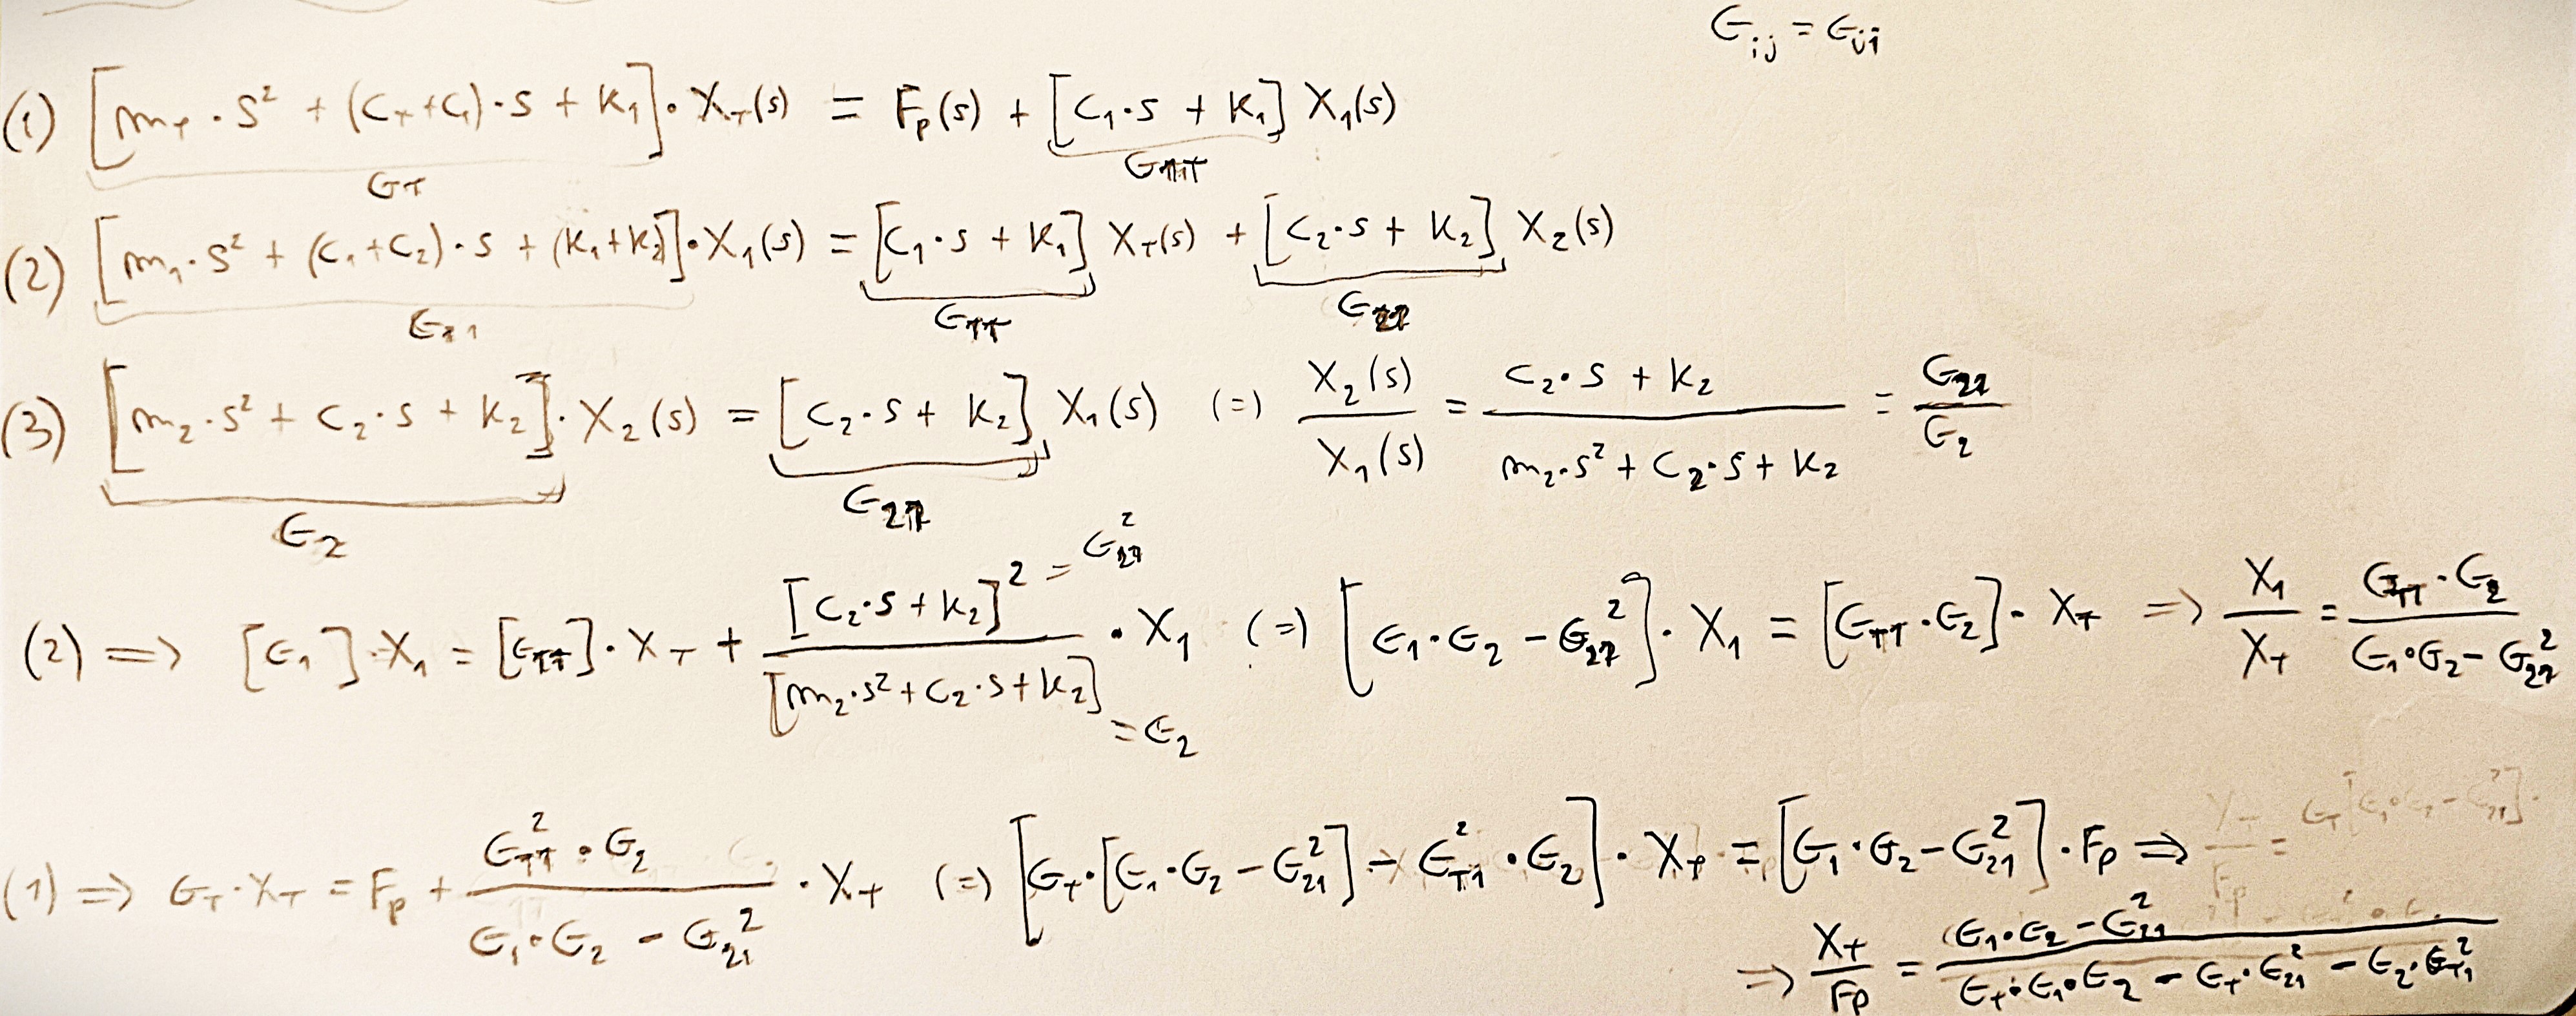 G_ij = G_ji
(1) [m_T · s² + (c_T + c_1) · s + k_1] · X_T(s) = F_p(s) + [c_1 · s + k_1] X_1(s)
G_T G_1T
(2) [m_1 · s² + (c_1 + c_2) · s + (k_1 + k_2)] · X_1(s) = [c_1 · s + k_1] X_T(s) + [c_2 · s + k_2] X_2(s)
G_T1 G_21
(3) [m_2 · s² + c_2 · s + k_2] · X_2(s) = [c_2 · s + k_2] X_1(s) (=) X_2(s) / X_1(s) = (c_2 · s + k_2) / (m_2 · s² + c_2 · s + k_2) = G_21 / G_2
G_2 G_21
(2) => [G_1] · X_1 = [G_T1] · X_T + [c_2 · s + k_2]² / [m_2 · s² + c_2 · s + k_2] · X_1 (=) [G_1 · G_2 − G_21²] · X_1 = [G_T1 · G_2] · X_T => X_1 / X_T = G_T1 · G_2 / (G_1 · G_2 − G_21²)
= G_21²
= G_2
(1) => G_T · X_T = F_p + G_T1² · G_2 / (G_1 · G_2 − G_21²) · X_T (=) [G_T · [G_1 · G_2 − G_21²] − G_T1² · G_2] · X_T = [G_1 · G_2 − G_21²] · F_p =>
=> X_T / F_p = (G_1 · G_2 − G_21²) / (G_T · G_1 · G_2 − G_T · G_21² − G_2 · G_T1²)